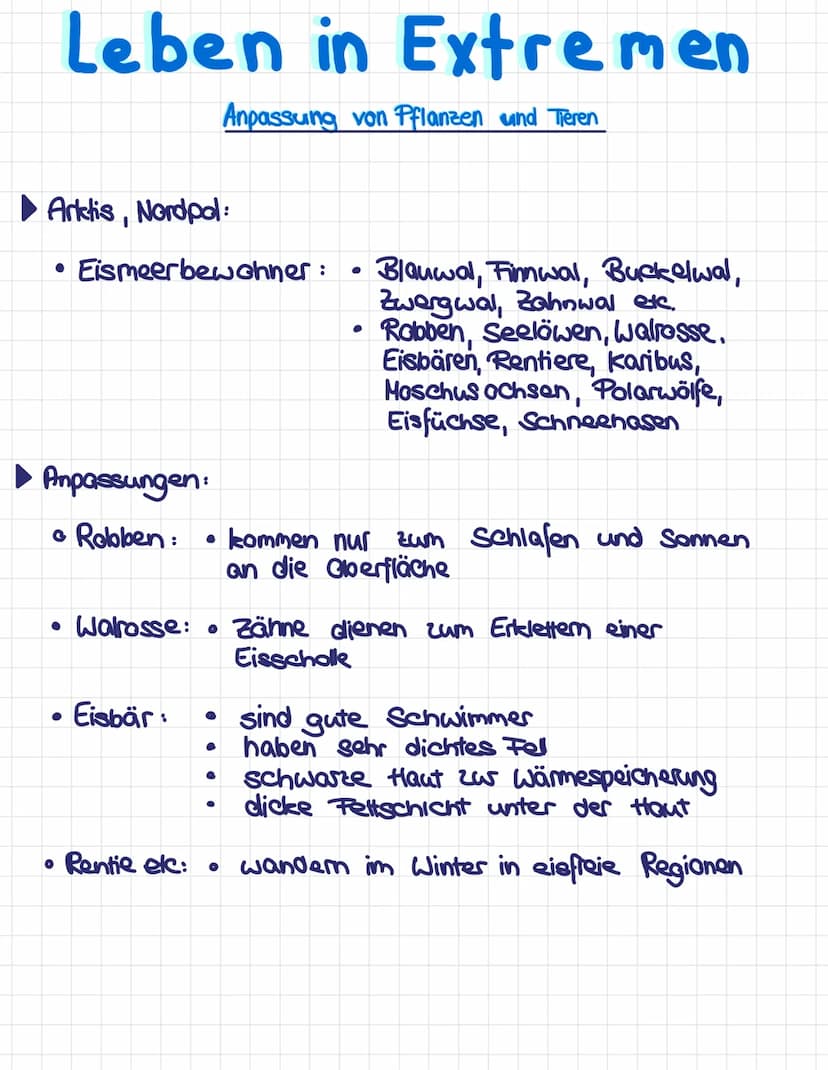 Leben in Extremen
Anpassung von Pflanzen und Tieren
▶ Arktis, Nordpol:
• Eismeerbewohner: • Blauwal, Finnwal, Buckelwal,
Zwergwal, Zahnwal etc.
• Robben, Seelöwen, Walrosse,
Eisbären, Rentiere, Karibus,
Moschusochsen, Polarwölfe,
Eisfüchse, Schneehasen
▶ Anpassungen:
• Robben: • kommen nur zum Schlafen und Sonnen
an die Oberfläche
• Walrosse: • Zähne dienen zum Erklettern einer
Eisscholle
• Eisbär: • sind gute Schwimmer
• haben sehr dichtes Fell
• schwarze Haut zur Wärmespeicherung
• dicke Fettschicht unter der Haut
• Rentie etc: • wandern im Winter in eisfreie Regionen